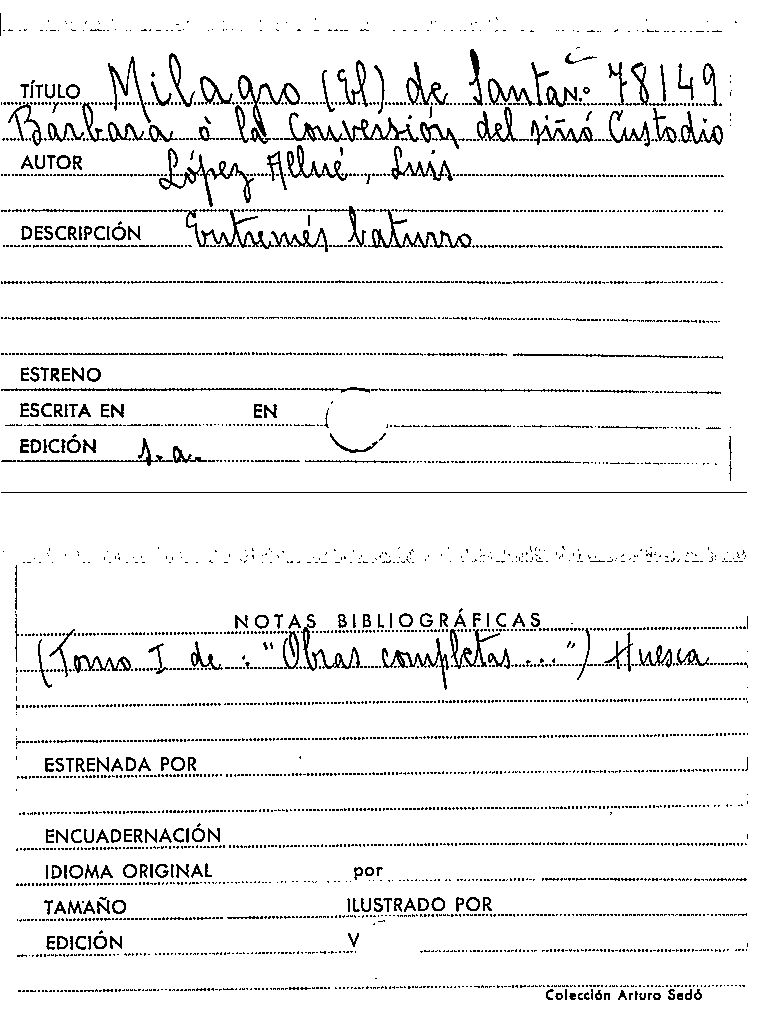 TÍTULO Milagro (El) de Santa N.º 78149
Bárbara ó la conversión del siñó Custodio
AUTOR López Allué, Luis
DESCRIPCIÓN Entremés baturro
ESTRENO
ESCRITA EN EN
EDICIÓN s.a.
NOTAS BIBLIOGRÁFICAS
(Tomo I de: "Obras completas...") Huesca
ESTRENADA POR
ENCUADERNACIÓN
IDIOMA ORIGINAL por
TAMAÑO ILUSTRADO POR
EDICIÓN V
Colección Arturo Sedó